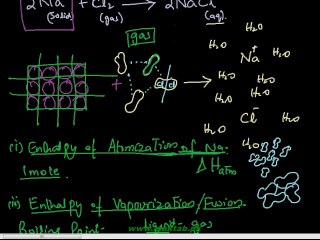 2Na + Cl2 → 2NaCl
(Solid) (gas) (aq)
gas
H2O
H2O Na+ H2O
H2O H2O
H2O H2O
Cl- H2O
H2O
H2O
+ Cl Cl
(i) Enthalpy of Atomization of Na
1mole. ΔHatm
(ii) Enthalpy of Vapourization/Fusion
Boiling Point - liquid - gas